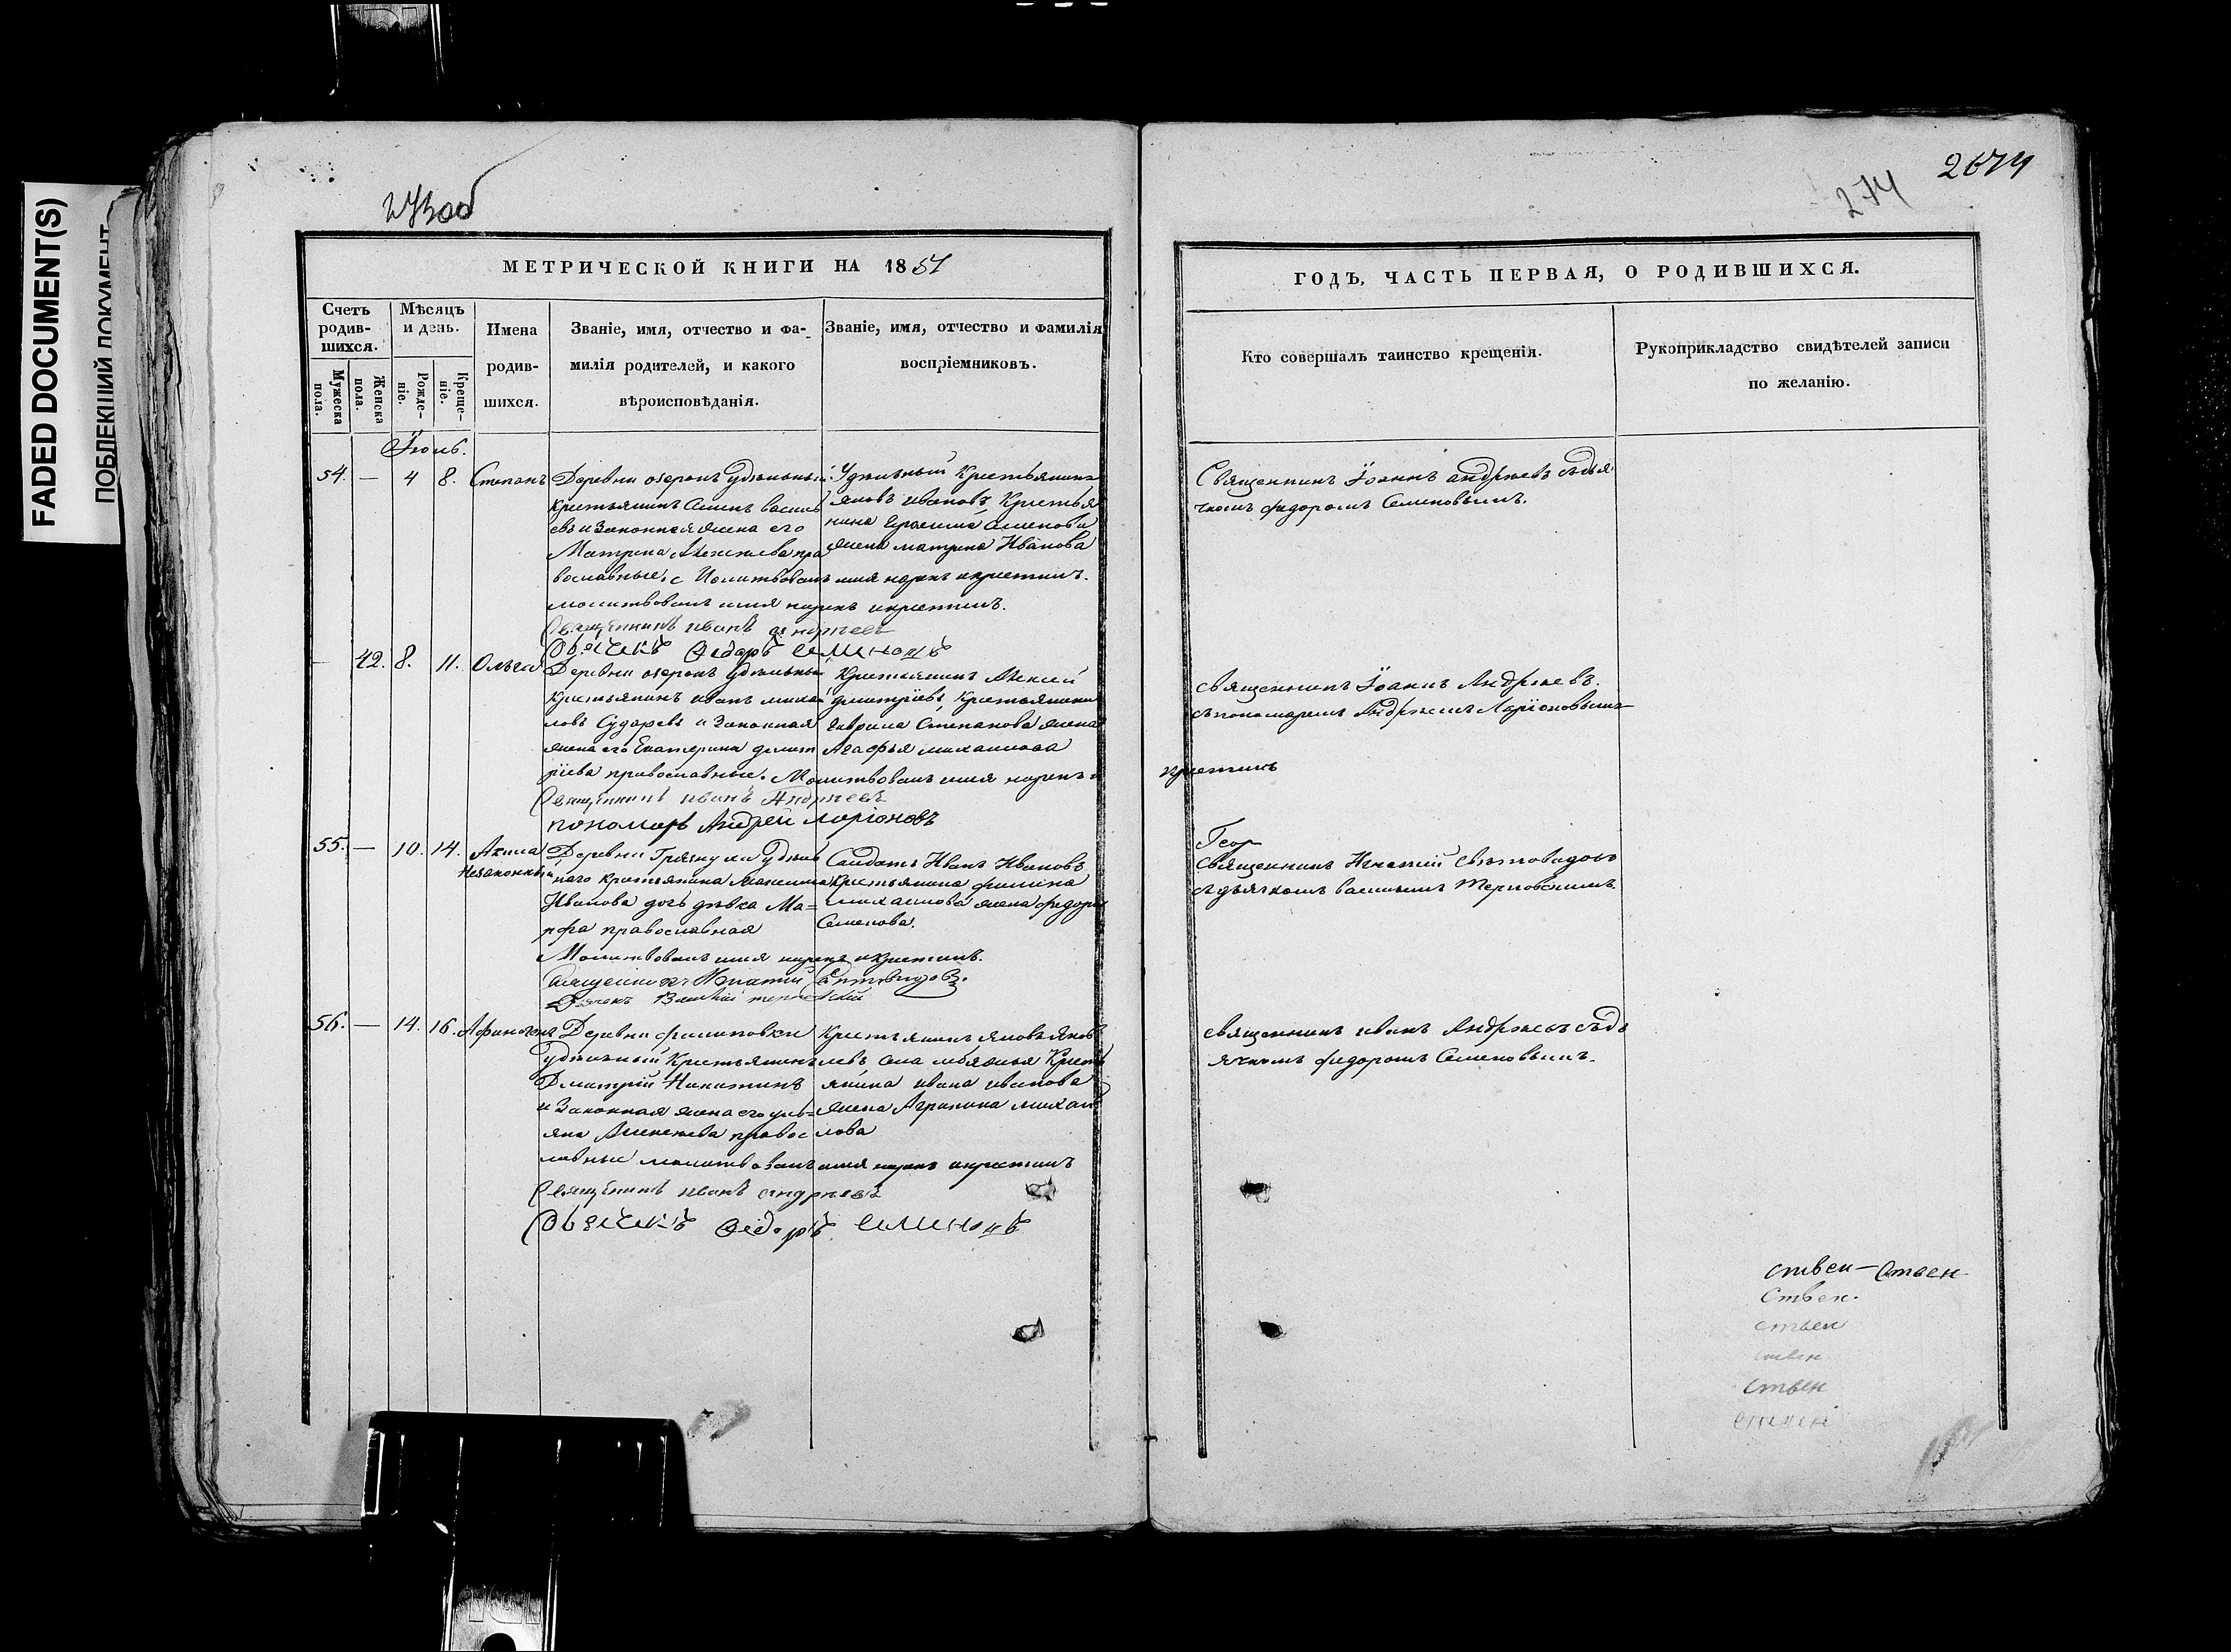 FADED DOCUMENT(S)
ПОБЛЕКШИЙ ДОКУМЕНТ
274
МЕТРИЧЕСКОЙ КНИГИ НА 1851
ГОДЪ, ЧАСТЬ ПЕРВАЯ, О РОДИВШИХСЯ.
Счетъ родив-шихся.
Мужеска пола.
Женска пола.
Мѣсяцъ и день.
Рожде-ніе.
Креще-ніе.
Имена
родив-
шихся.
Званіе, имя, отчество и фа-
милія родителей, и какого
вѣроисповѣданія.
Званіе, имя, отчество и фамилія
воспріемниковъ.
Кто совершалъ таинство крещенія.
Рукоприкладство свидѣтелей записи
по желанію.
Іюль.
54. — 4 8. Степанъ
Деревни удѣльный
крестьянинъ василь
евъ и законная жена его
Матрена Алексѣева пра
вославные.
Молитвовалъ имя нарекъ и крестилъ.
молитвовалъ имя нарекъ и крестилъ.
Священникъ иванъ андрѣевъ
Дьячекъ Ѳедоръ семеновъ
Удѣльный Крестьянинъ
яковъ ивановъ, Крестья
нина Семенова
жена матрена Иванова
Священникъ Іоаннъ андрѣевъ съ дья
чкомъ федоромъ Семеновымъ.
— 42. 8. 11. Ольга
Деревни удѣльный
Крестьянинъ иванъ михаи
ловъ Сударевъ и Законная
жена его Екатерина дмит
ріева православные. Молитвовалъ имя нарекъ и
крестилъ
Священникъ иванъ Андрѣевъ
пономарь Андрей ларіоновъ
Крестьянинъ Алексей
дмитріевъ, Крестьянина
Гаврила Степанова жена
Агафья михаилова
священникъ Іоаннъ Андрѣевъ.
съ пономаремъ Андрѣемъ Ларіоновымъ
55. — 10. 14. Акила
Незаконный
Деревни Грязнухи Удѣль
наго крестьянина Максима
Иванова дочь дѣвка Ма=
рфа православная
Молитвовалъ имя нарекъ и крестилъ.
Священникъ Игнатій Свѣтовидовъ.
Дьячекъ Василій терновскій
Солдатъ Иванъ Ивановъ
Крестьянина филипа
михаилова жена федора
Семенова.
Геор
священникъ Игнатій свѣтовидовъ
съ дьячкомъ васильемъ Терновскимъ.
56. — 14. 16. Афиногенъ
Деревни филиповки
Удѣльный Крестьянинъ
Дмитрій Никитинъ
и Законная жена его улья
яна Алексѣева правос
лавные молитвовалъ имя нарекъ и крестилъ
Священникъ иванъ андрѣевъ
Дьячекъ Ѳедоръ семеновъ
Крестьянинъ яковъ яков
левъ Крест
янина ивана иванова
жена Агрипина михаи
лова
священникъ иванъ Андрѣевъ съ дь
ячкомъ федоромъ Семеновымъ.
ствен — ствен
ствен.
ствен
ствен
ствен